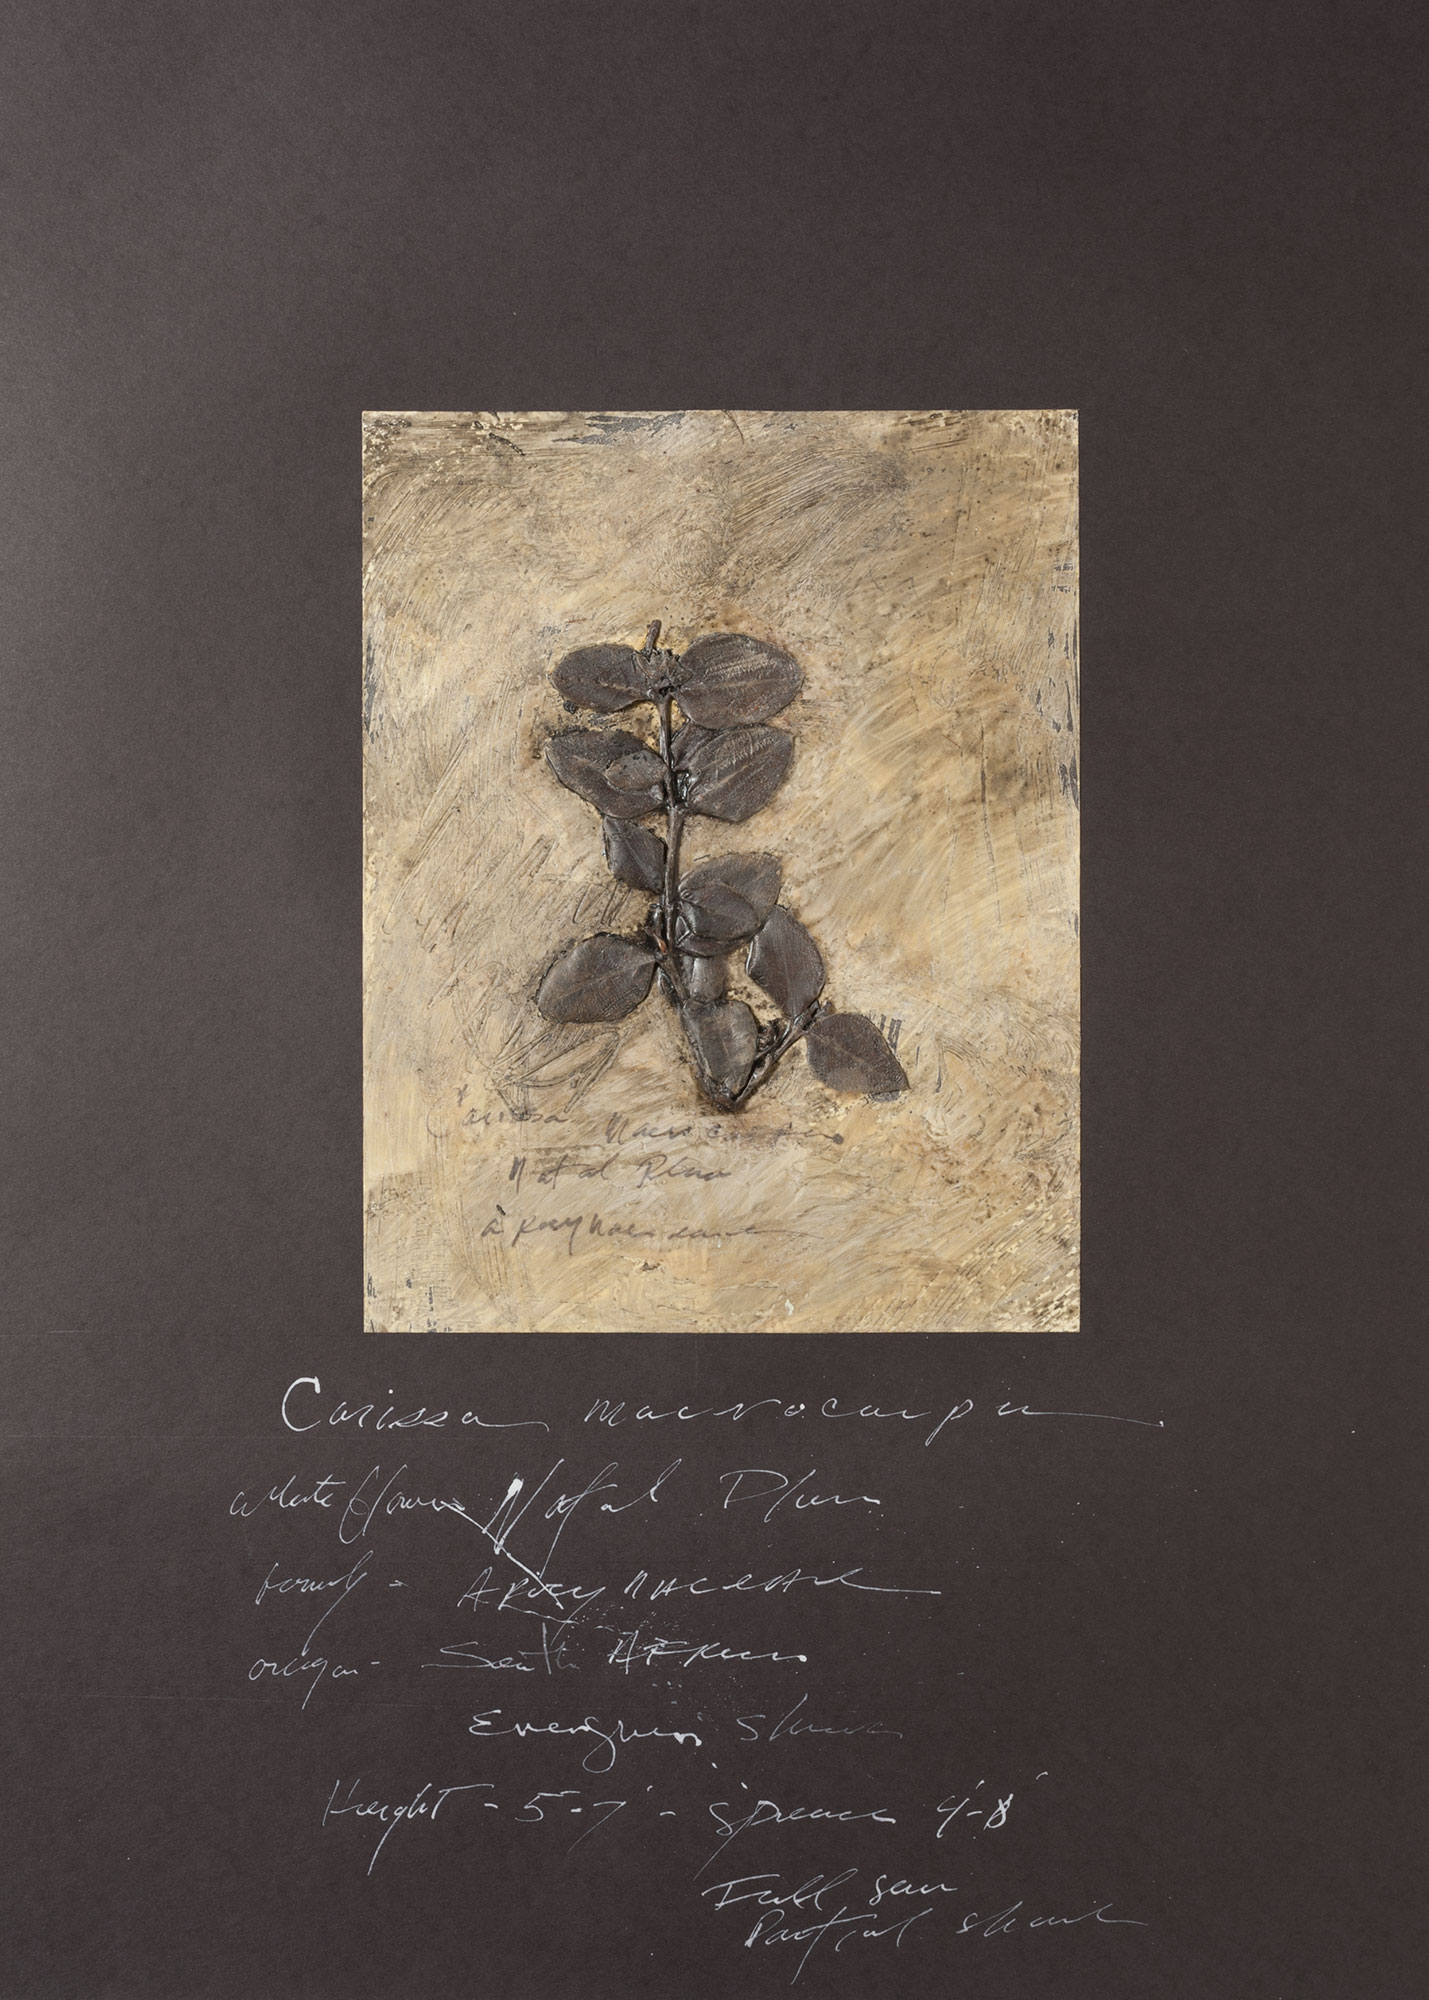 Carissa macrocarpa
Natal Plum
apocynaceae
Carissa macrocarpa
white flowers Natal Plum
family - Apocynaceae
origin - South AFRica
Evergreen shrub
Height - 5-7' - spread 4'-8'
Full sun
Partial shade